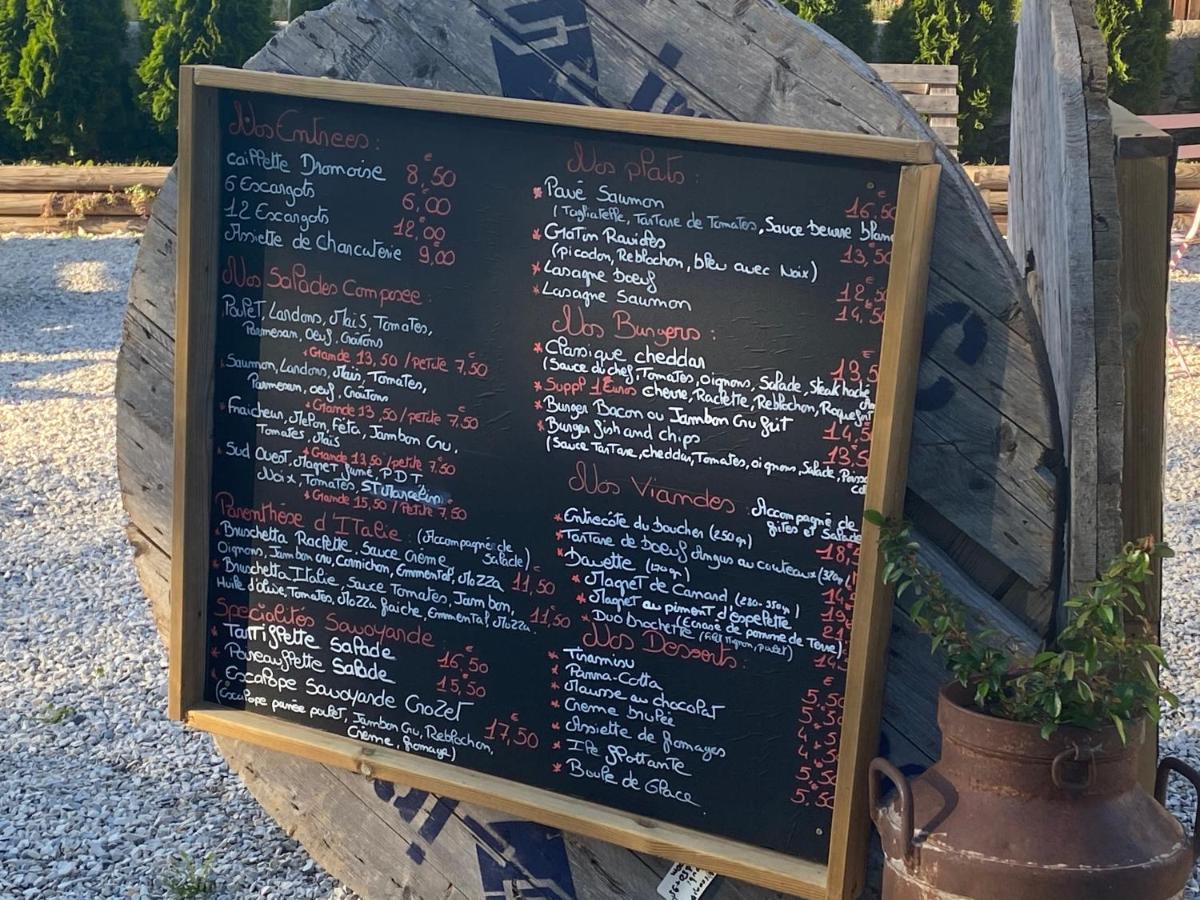 Nos Entrees :
caillette Dromoise 8,50 €
6 Escargots 6,00
12 Escargots 12,00
Assiette de Charcuterie 9,00
Nos Salades Composee :
Poulet, Lardons, Maïs, Tomates,
Parmesan, Oeuf, Croûtons
* Grande 13,50 / Petite 7,50
Saumon, Lardons, Maïs, Tomates,
Parmesan, oeuf, Croûtons
* Grande 13,50 / petite 7,50
* Fraicheur, Melon, Féta, Jambon Cru,
Tomates, Maïs
* Grande 13,50 / petite 7,50
* Sud Ouest, Magret fumé, P.D.T,
Noix, Tomates, ST Marcellin
* Grande 15,50 / Petite 7,50
Parenthèse d'Italie : (Accompagnée de Salade)
* Bruschetta Raclette, Sauce Crème
Oignons, Jambon cru, Cornichon, Emmental, Mozza 11,50 €
* Bruschetta Italie, Sauce Tomates, Jambon,
Huile d'olive, Tomates, Mozza fraiche, Emmental, Mozza. 11,50 €
Specialités Savoyarde
* Tartiflette Salade 16,50 €
* Poireauflette Salade 15,50
* Escalope Savoyarde Crozet
(Escalope panée poulet, Jambon Cru, Reblochon, 17,50 €
Crème, fromage)
Nos plats :
* Pavé Saumon 16,50
(Tagliatelle, Tartare de Tomates, Sauce beurre blanc
* Gratin Ravioles 13,50
(picodon, Reblochon, bleu avec Noix)
* Lasagne boeuf 12,50
* Lasagne Saumon 14,50
Nos Burgers :
* Classique cheddar 13,5
(Sauce du chef, Tomates, oignons, Salade, Steak haché
* Suppl 1 Euros chèvre, Raclette, Reblochon, Roquefort
* Burger Bacon ou Jambon Cru frit 14,5
* Burger fish and chips 13,5
(Sauce Tartare, cheddar, Tomates, oignons, Salade, Poisso
Nos Viandes : Accompagné de
frites et Salade
* Entrecôte du boucher (250gr) 18,
* Tartare de boeuf Angus au couteaux
* Bavette
* Magret de Canard
* Magret au piment d'espelette
(Ecrasé de pomme de Terre)
* Duo brochette (Filet Mignon, poulet) 14,
Nos Desserts :
* Tiramisu 5,50
* Panna-Cotta
* Mousse au chocolat
* Crème Brulée
* Assiette de fromages
* Ile flottante 5,50
* Boule de Glace